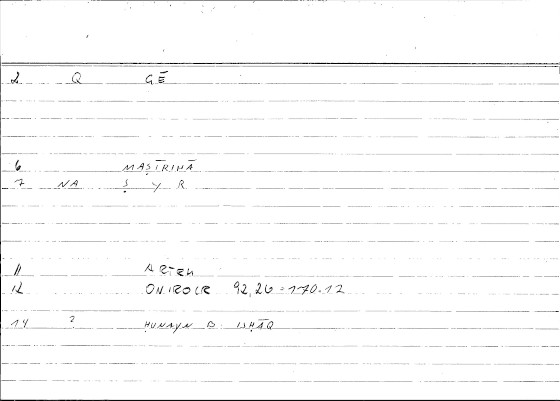 2 Q GĒ
6 MAṢĪRIHĀ
7 NA Ṣ Y R
11 ARTEM
12 ONIROCR 92,26 = 170.12
14 ? ḤUNAYN B. ISḤĀQ